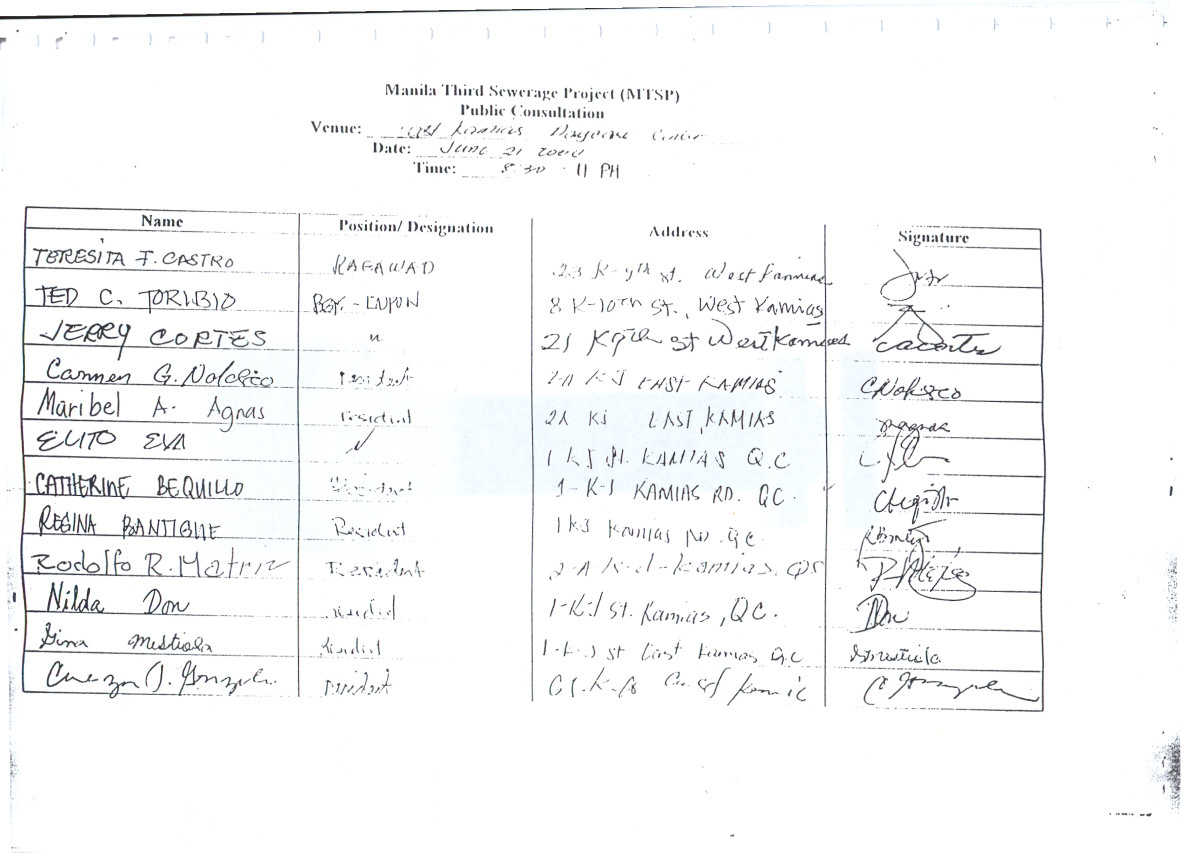 Manila Third Sewerage Project (MTSP)
Public Consultation
Venue: Kamias Daycare Center
Date: June 21
Time: 8:30 - 11 PM
Name Position/ Designation Address Signature
TERESITA F. CASTRO KAGAWAD 23 K-9th st. West Kamias
TED C. TORIBIO BGY. - LUPON 8 K-10TH ST., West Kamias
JERRY CORTES " 21 K 9th st West Kamias cacortes
Carmen G. resident 2-A KJ EAST KAMIAS
Maribel A. Agnas resident 2A KJ EAST KAMIAS magnas
ELITO EVA 1 KJ St. KAMIAS Q.C
CATHERINE BEQUILLO Resident 1-K-J KAMIAS RD. QC.
REGINA BANTIGUE Resident 1 KJ Kamias RD. Q.C.
Rodolfo R. Matriz Resident 2-A K-J-Kamias. QC
Nilda Don resident 1-K-J St. Kamias, QC. Don
Gina resident 1-K-J St East Kamias Q.C
resident